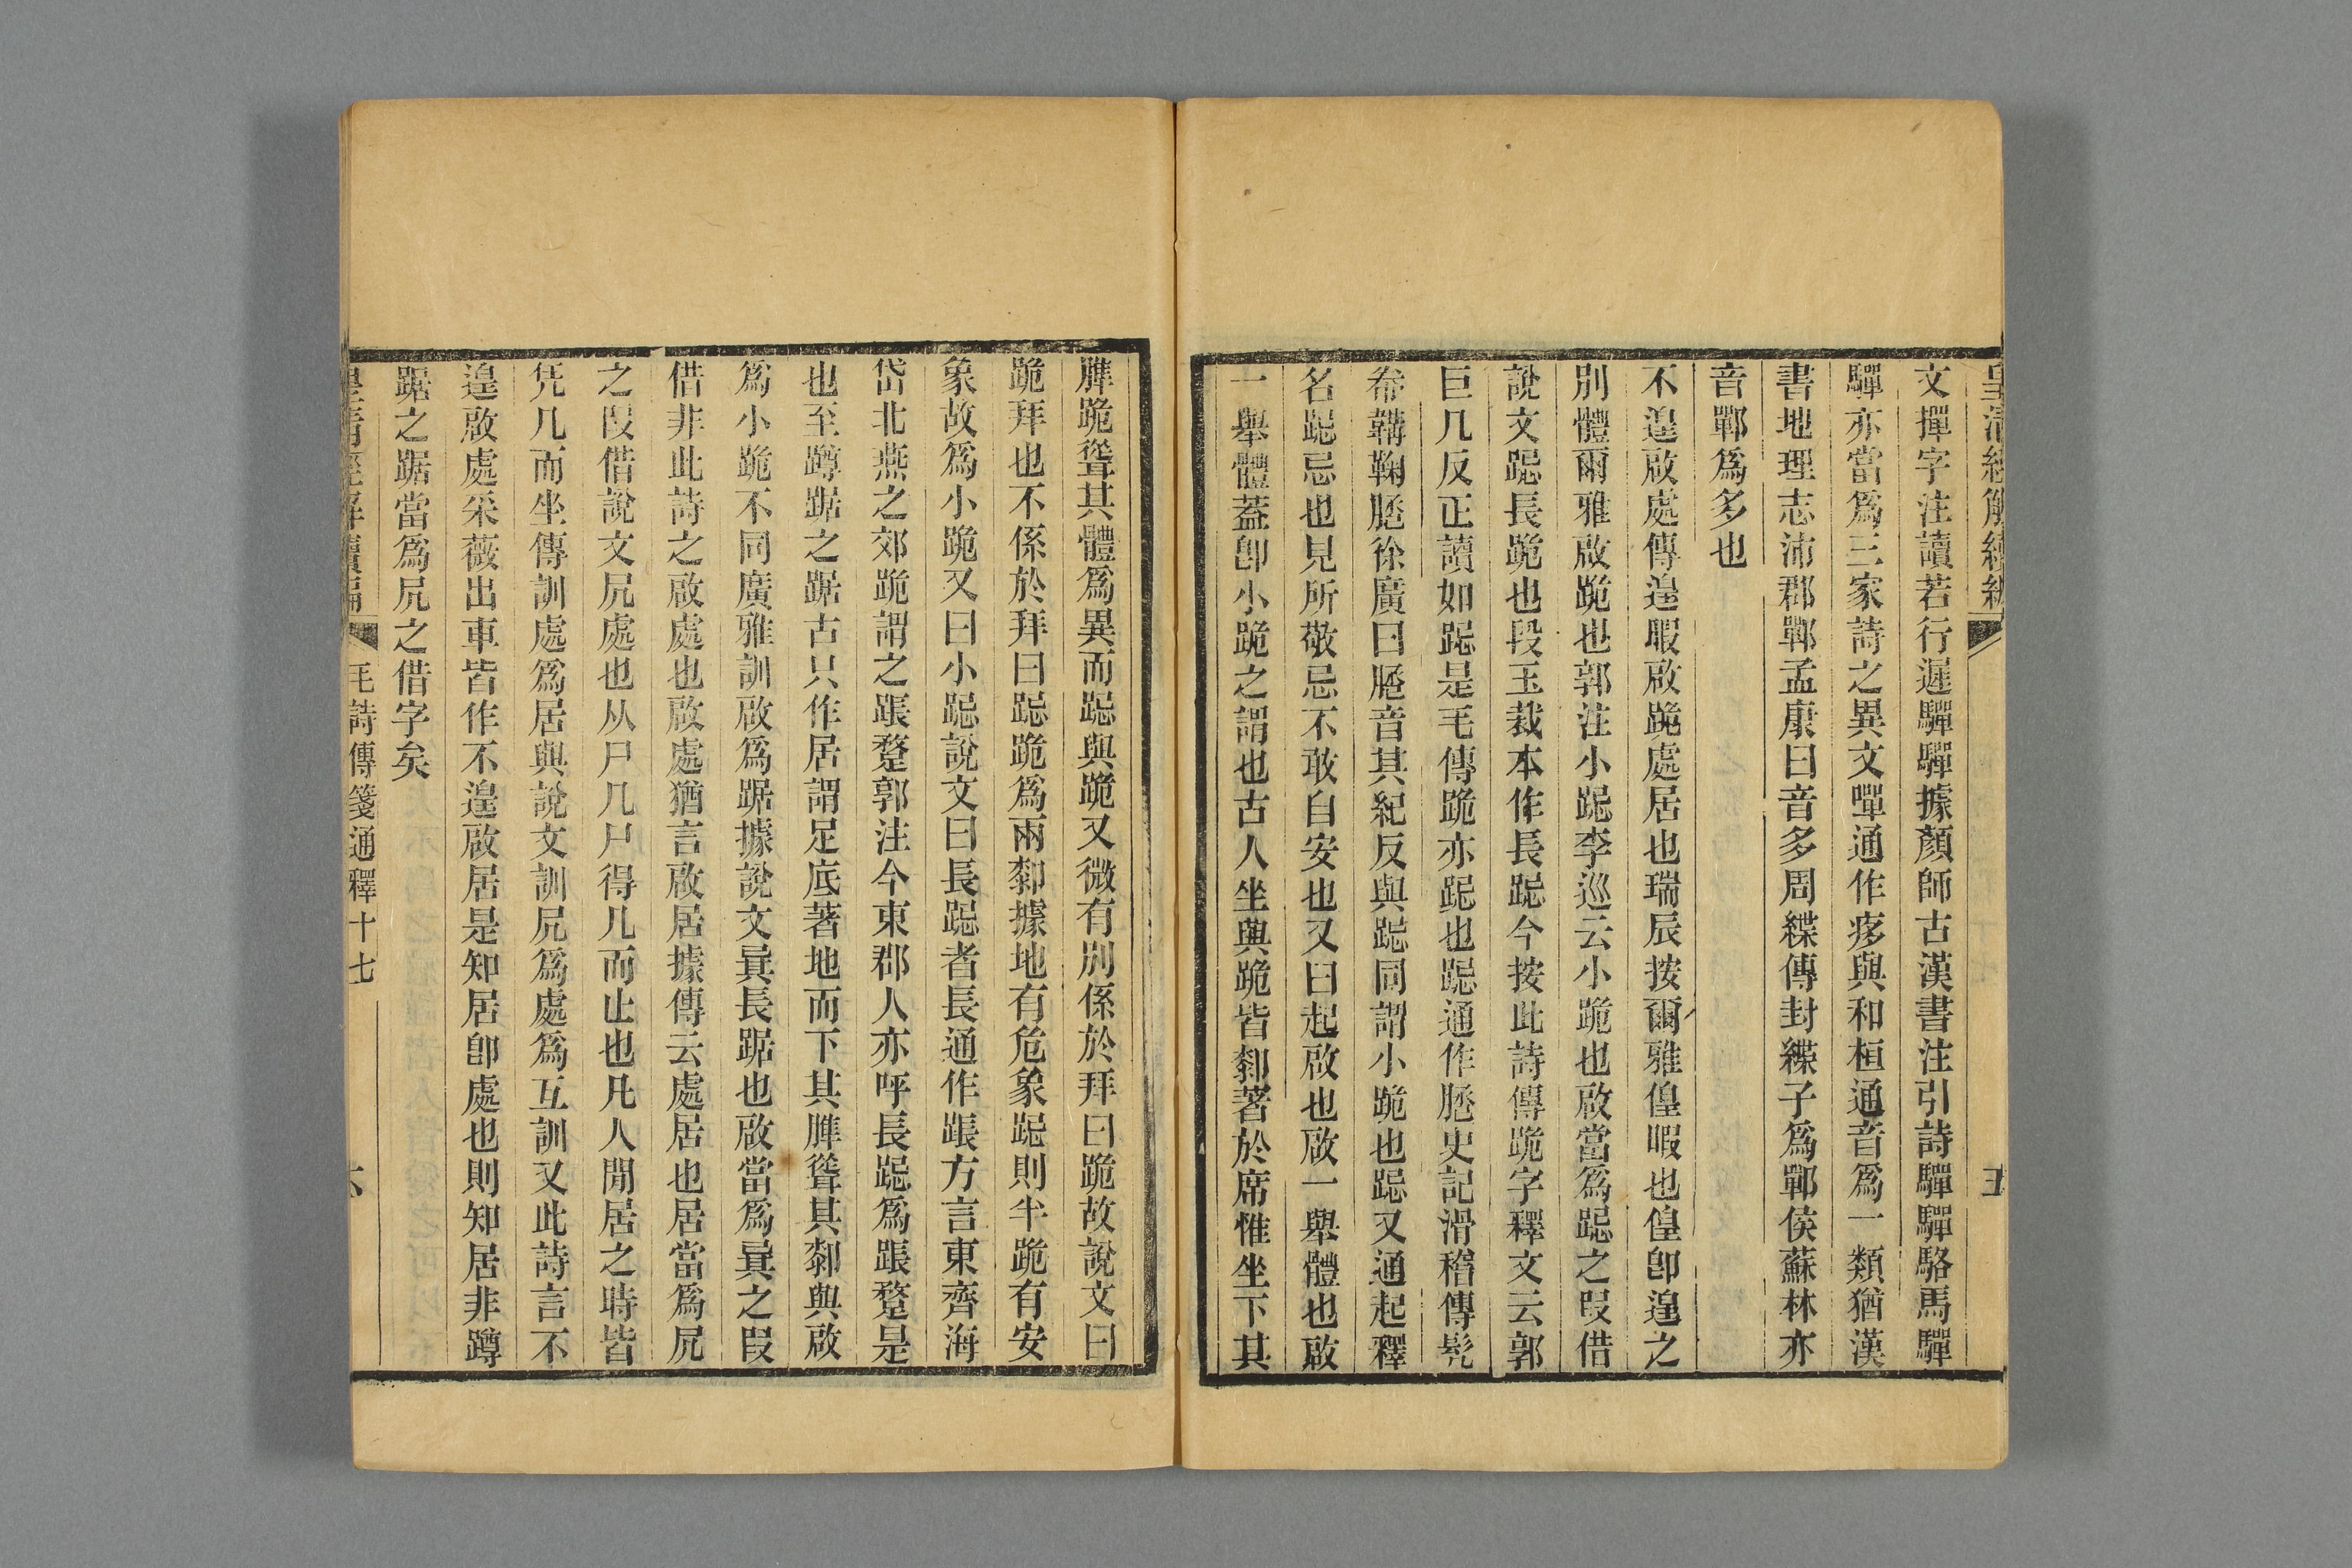 皇清經解續編
五
文撣字注讀若行遲驒驒據顏師古漢書注引詩驒驒駱馬驒
驒亦當爲三家詩之異文嘽通作痑與和桓通音爲一類猶漢
書地理志沛郡鄲孟康曰音多周緤傳封緤子爲鄲侯蘇林亦
音鄲爲多也
不遑啟處傳遑暇啟跪處居也瑞辰按爾雅偟暇也偟卽遑之
別體爾雅啟跪也郭注小跽李巡云小跪也啟當爲跽之叚借
說文跽長跪也段玉裁本作長跽今按此詩傳跪字釋文云郭
巨几反正讀如跽是毛傳跪亦跽也跽通作𦝠史記滑稽傳髡
帣韝鞠𦝠徐廣曰𦝠音其紀反與跽同謂小跪也跽又通起釋
名跽忌也見所敬忌不敢自安也又曰起啟也啟一舉體也啟
一舉體蓋卽小跪之謂也古人坐與跪皆厀著於席惟坐下其
脾跪聳其體爲異而跽與跪又微有別係於拜曰跪故說文曰
跪拜也不係於拜曰跽跪爲兩厀據地有危象跽則半跪有安
象故爲小跪又曰小跽說文曰長跽者長通作䠆方言東齊海
岱北燕之郊跪謂之䠆䠞郭注今東郡人亦呼長跽爲䠆䠞是
也至蹲踞之踞古只作居謂足底著地而下其脾聳其厀與啟
爲小跪不同廣雅訓啟爲踞據說文㠱長踞也啟當爲㠱之叚
借非此詩之啟處也啟處猶言啟居據傳云處居也居當爲凥
之叚借說文凥處也从尸几尸得几而止也凡人閒居之時皆
凭几而坐傳訓處爲居與說文訓凥爲處爲互訓又此詩言不
遑啟處采薇出車皆作不遑啟居是知居卽處也則知居非蹲
踞之踞當爲凥之借字矣
皇清經解續編
毛詩傳箋通釋十七
六